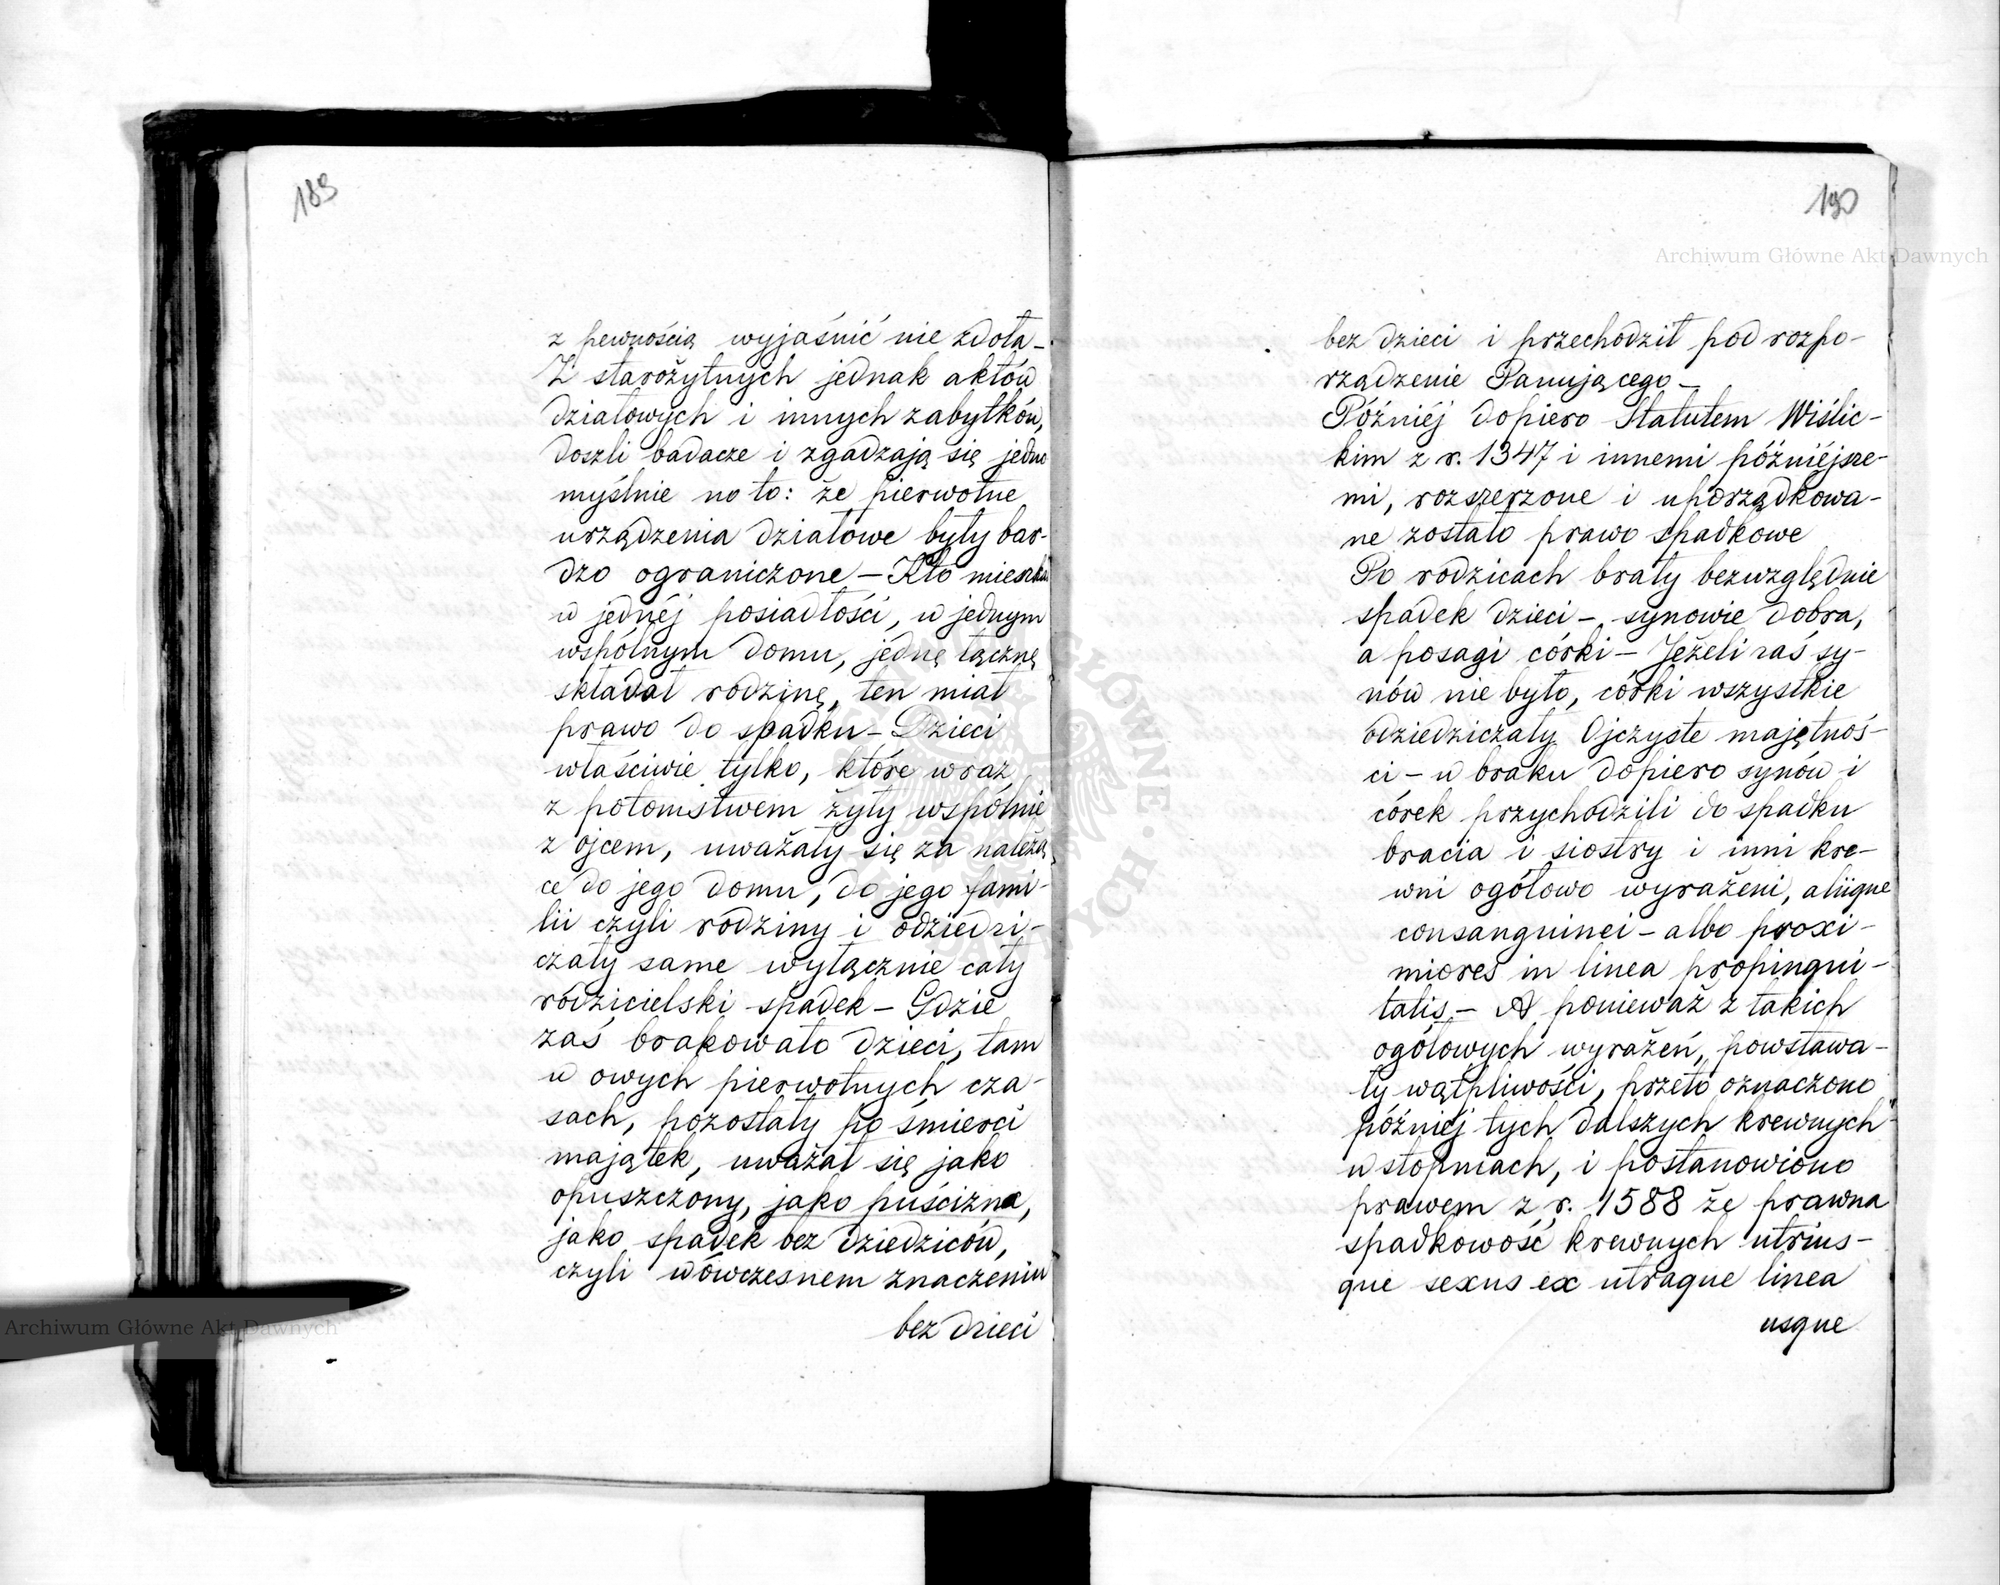 189
z pewnością wyjaśnić nie zdoła –
Z starożytnych jednak aktów
działowych i innych zabytków,
doszli badacze i zgadzają się jedno
myślnie na to: że pierwotne
urządzenia działowe były bar-
dzo ograniczone – Kto mieszkał
w jednéj posiadłości, w jednym
wspólnym domu, jednę łączną
składał rodzinę, ten miał
prawo do spadku – Dzieci
właściwie tylko, które wraz
z potomstwem żyły wspólnie
z ojcem, uważały się za należą,
ce do jego domu, do jego fami-
lii czyli rodziny i odziedzi-
czały same wyłącznie cały
rodzicielski spadek – Gdzie
zaś brakowało dzieci, tam
w owych pierwotnych cza-
sach, pozostały po śmierci
majątek, uważał się jako
opuszczony, jako puścizna,
jako spadek bez dziedziców,
czyli wówczesnem znaczeniu
bez dzieci
190
bez dzieci i przechodził pod rozpo-
rządzenie Panującego –
Późniéj dopiero Statutem Wiślic-
kim z r. 1347 i innemi późniéjsze-
mi, rozszerzone i uporządkowa-
ne zostało prawo spadkowe
Po rodzicach brały bezwzględnie
spadek dzieci – synowie dobra,
a posagi córki – Jeżeli zaś sy-
nów nie było, córki wszystkie
odziedziczały Ojczyste majętnoś-
ci – w braku dopiero synów i
córek przychodzili do spadku
bracia i siostry i inni kre-
wni ogółowo wyrażeni, aliique
consanguinei – albo proxi-
miores in linea propinqui-
tatis – A ponieważ z takich
ogółowych wyrażeń, powstawa-
ły wątpliwości, przeto oznaczono
późniéj tych dalszych krewnych
w stopniach, i postanowiono
prawem z r. 1588 że prawna
spadkowość krewnych utrius-
que sexus ex utraque linea
usque
Archiwum Główne Akt Dawnych
Archiwum Główne Akt Dawnych